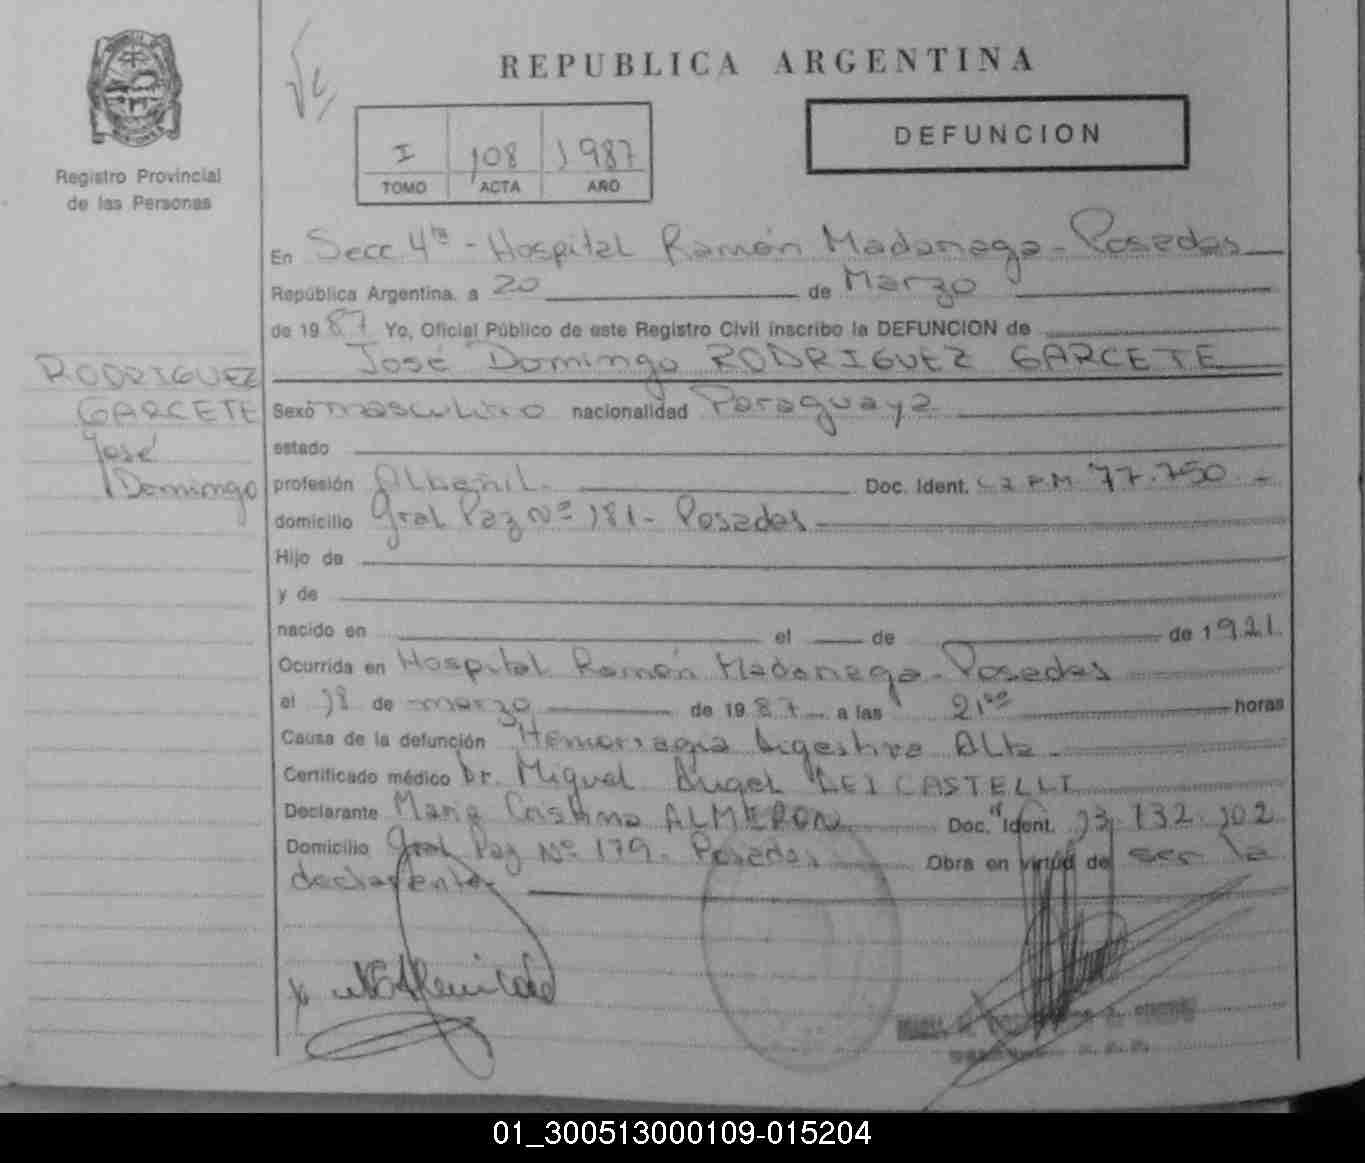 REPUBLICA ARGENTINA
DEFUNCION
I 108 1987
TOMO ACTA AÑO
Registro Provincial
de las Personas
En Secc. 4ta - Hospital Ramón Madariaga - Posadas
República Argentina, a 20 de Marzo
de 1987 Yo, Oficial Público de este Registro Civil inscribo la DEFUNCION de
José Domingo RODRIGUEZ GARCETE
RODRIGUEZ
GARCETE
José
Domingo
Sexo masculino nacionalidad Paraguaya
estado
profesión Albañil Doc. Ident. 77.750
domicilio Gral Paz Nº 181 - Posadas
Hijo de
y de
nacido en el de de 1921
Ocurrida en Hospital Ramón Madariaga - Posadas
el 18 de marzo de 1987 a las 21 horas
Causa de la defunción Hemorragia Digestiva Alta
Certificado médico Dr. Miguel Angel DEI CASTELLI
Declarante Maria Cristina ALMERON Doc. Ident. 13.132.102
Domicilio Gral Paz Nº 179 - Posadas Obra en virtud de ser la
declarante
01_300513000109-015204